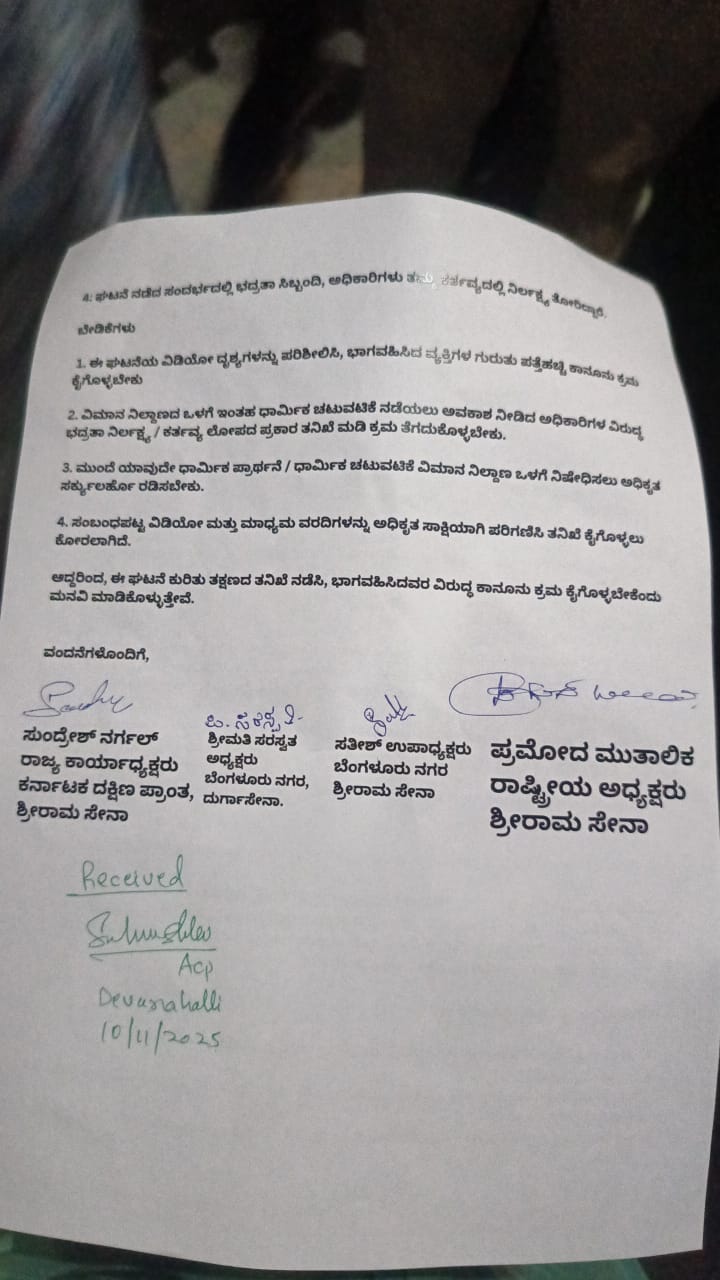 4. ಘಟನೆ ನಡೆದ ಸಂದರ್ಭದಲ್ಲಿ ಭದ್ರತಾ ಸಿಬ್ಬಂದಿ, ಅಧಿಕಾರಿಗಳು ತಮ್ಮ ಕರ್ತವ್ಯದಲ್ಲಿ ನಿರ್ಲಕ್ಷ್ಯ ತೋರಿದ್ದಾರೆ.
ಬೇಡಿಕೆಗಳು
1. ಈ ಘಟನೆಯ ವಿಡಿಯೋ ದೃಶ್ಯಗಳನ್ನು ಪರಿಶೀಲಿಸಿ, ಭಾಗವಹಿಸಿದ ವ್ಯಕ್ತಿಗಳ ಗುರುತು ಪತ್ತೆಹಚ್ಚಿ ಕಾನೂನು ಕ್ರಮ
ಕೈಗೊಳ್ಳಬೇಕು
2. ವಿಮಾನ ನಿಲ್ದಾಣದ ಒಳಗೆ ಇಂತಹ ಧಾರ್ಮಿಕ ಚಟುವಟಿಕೆ ನಡೆಯಲು ಅವಕಾಶ ನೀಡಿದ ಅಧಿಕಾರಿಗಳ ವಿರುದ್ಧ
ಭದ್ರತಾ ನಿರ್ಲಕ್ಷ್ಯ / ಕರ್ತವ್ಯ ಲೋಪದ ಪ್ರಕಾರ ತನಿಖೆ ಮಡಿ ಕ್ರಮ ತೆಗದುಕೊಳ್ಳಬೇಕು.
3. ಮುಂದೆ ಯಾವುದೇ ಧಾರ್ಮಿಕ ಪ್ರಾರ್ಥನೆ / ಧಾರ್ಮಿಕ ಚಟುವಟಿಕೆ ವಿಮಾನ ನಿಲ್ದಾಣ ಒಳಗೆ ನಿಷೇಧಿಸಲು ಅಧಿಕೃತ
ಸರ್ಕ್ಯುಲರ್ಹೊ ರಡಿಸಬೇಕು.
4. ಸಂಬಂಧಪಟ್ಟ ವಿಡಿಯೋ ಮತ್ತು ಮಾಧ್ಯಮ ವರದಿಗಳನ್ನು ಅಧಿಕೃತ ಸಾಕ್ಷಿಯಾಗಿ ಪರಿಗಣಿಸಿ ತನಿಖೆ ಕೈಗೊಳ್ಳಲು
ಕೋರಲಾಗಿದೆ.
ಆದ್ದರಿಂದ, ಈ ಘಟನೆ ಕುರಿತು ತಕ್ಷಣದ ತನಿಖೆ ನಡೆಸಿ, ಭಾಗವಹಿಸಿದವರ ವಿರುದ್ಧ ಕಾನೂನು ಕ್ರಮ ಕೈಗೊಳ್ಳಬೇಕೆಂದು
ಮನವಿ ಮಾಡಿಕೊಳ್ಳುತ್ತೇವೆ.
ವಂದನೆಗಳೊಂದಿಗೆ,
ಸುಂದ್ರೇಶ್ ನರ್ಗಲ್
ರಾಜ್ಯ ಕಾರ್ಯಾಧ್ಯಕ್ಷರು
ಕರ್ನಾಟಕ ದಕ್ಷಿಣ ಪ್ರಾಂತ,
ಶ್ರೀರಾಮ ಸೇನಾ
ಶ್ರೀಮತಿ ಸರಸ್ವತ
ಅಧ್ಯಕ್ಷರು
ಬೆಂಗಳೂರು ನಗರ,
ದುರ್ಗಾಸೇನಾ.
ಸತೀಶ್ ಉಪಾಧ್ಯಕ್ಷರು
ಬೆಂಗಳೂರು ನಗರ
ಶ್ರೀರಾಮ ಸೇನಾ
ಪ್ರಮೋದ ಮುತಾಲಿಕ
ರಾಷ್ಟ್ರೀಯ ಅಧ್ಯಕ್ಷರು
ಶ್ರೀರಾಮ ಸೇನಾ
Received
Acp
Devanahalli
10/11/2025